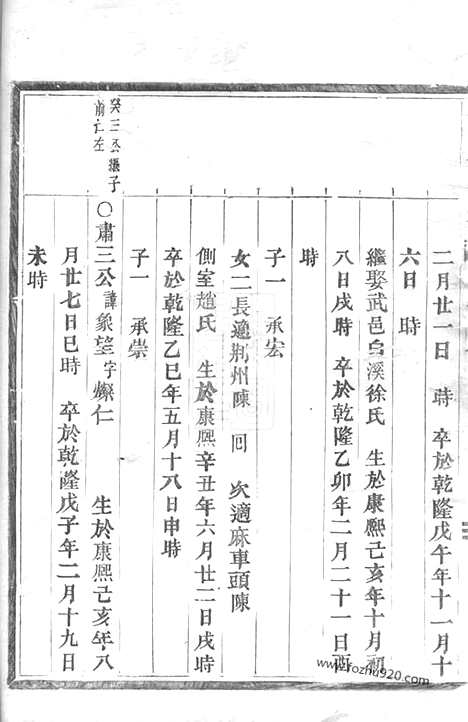 二月廿一日 時 卒於乾隆戊午年十一月十
六日 時
繼娶武邑烏溪徐氏 生於康熙己亥年十月初
八日戌時 卒於乾隆乙卯年二月二十一日酉
時
子一 承宏
女二長適荆州陳 回 次適麻車頭陳
側室趙氏 生於康熙辛丑年六月廿二日戌時
卒於乾隆乙巳年五月十八日申時
子一 承崇
癸三公繼子
前仁左
○肅三公諱象望字燦仁 生於康熙己亥年八
月廿七日巳時 卒於乾隆戊子年二月十九日
未時
www.fozhu920.com